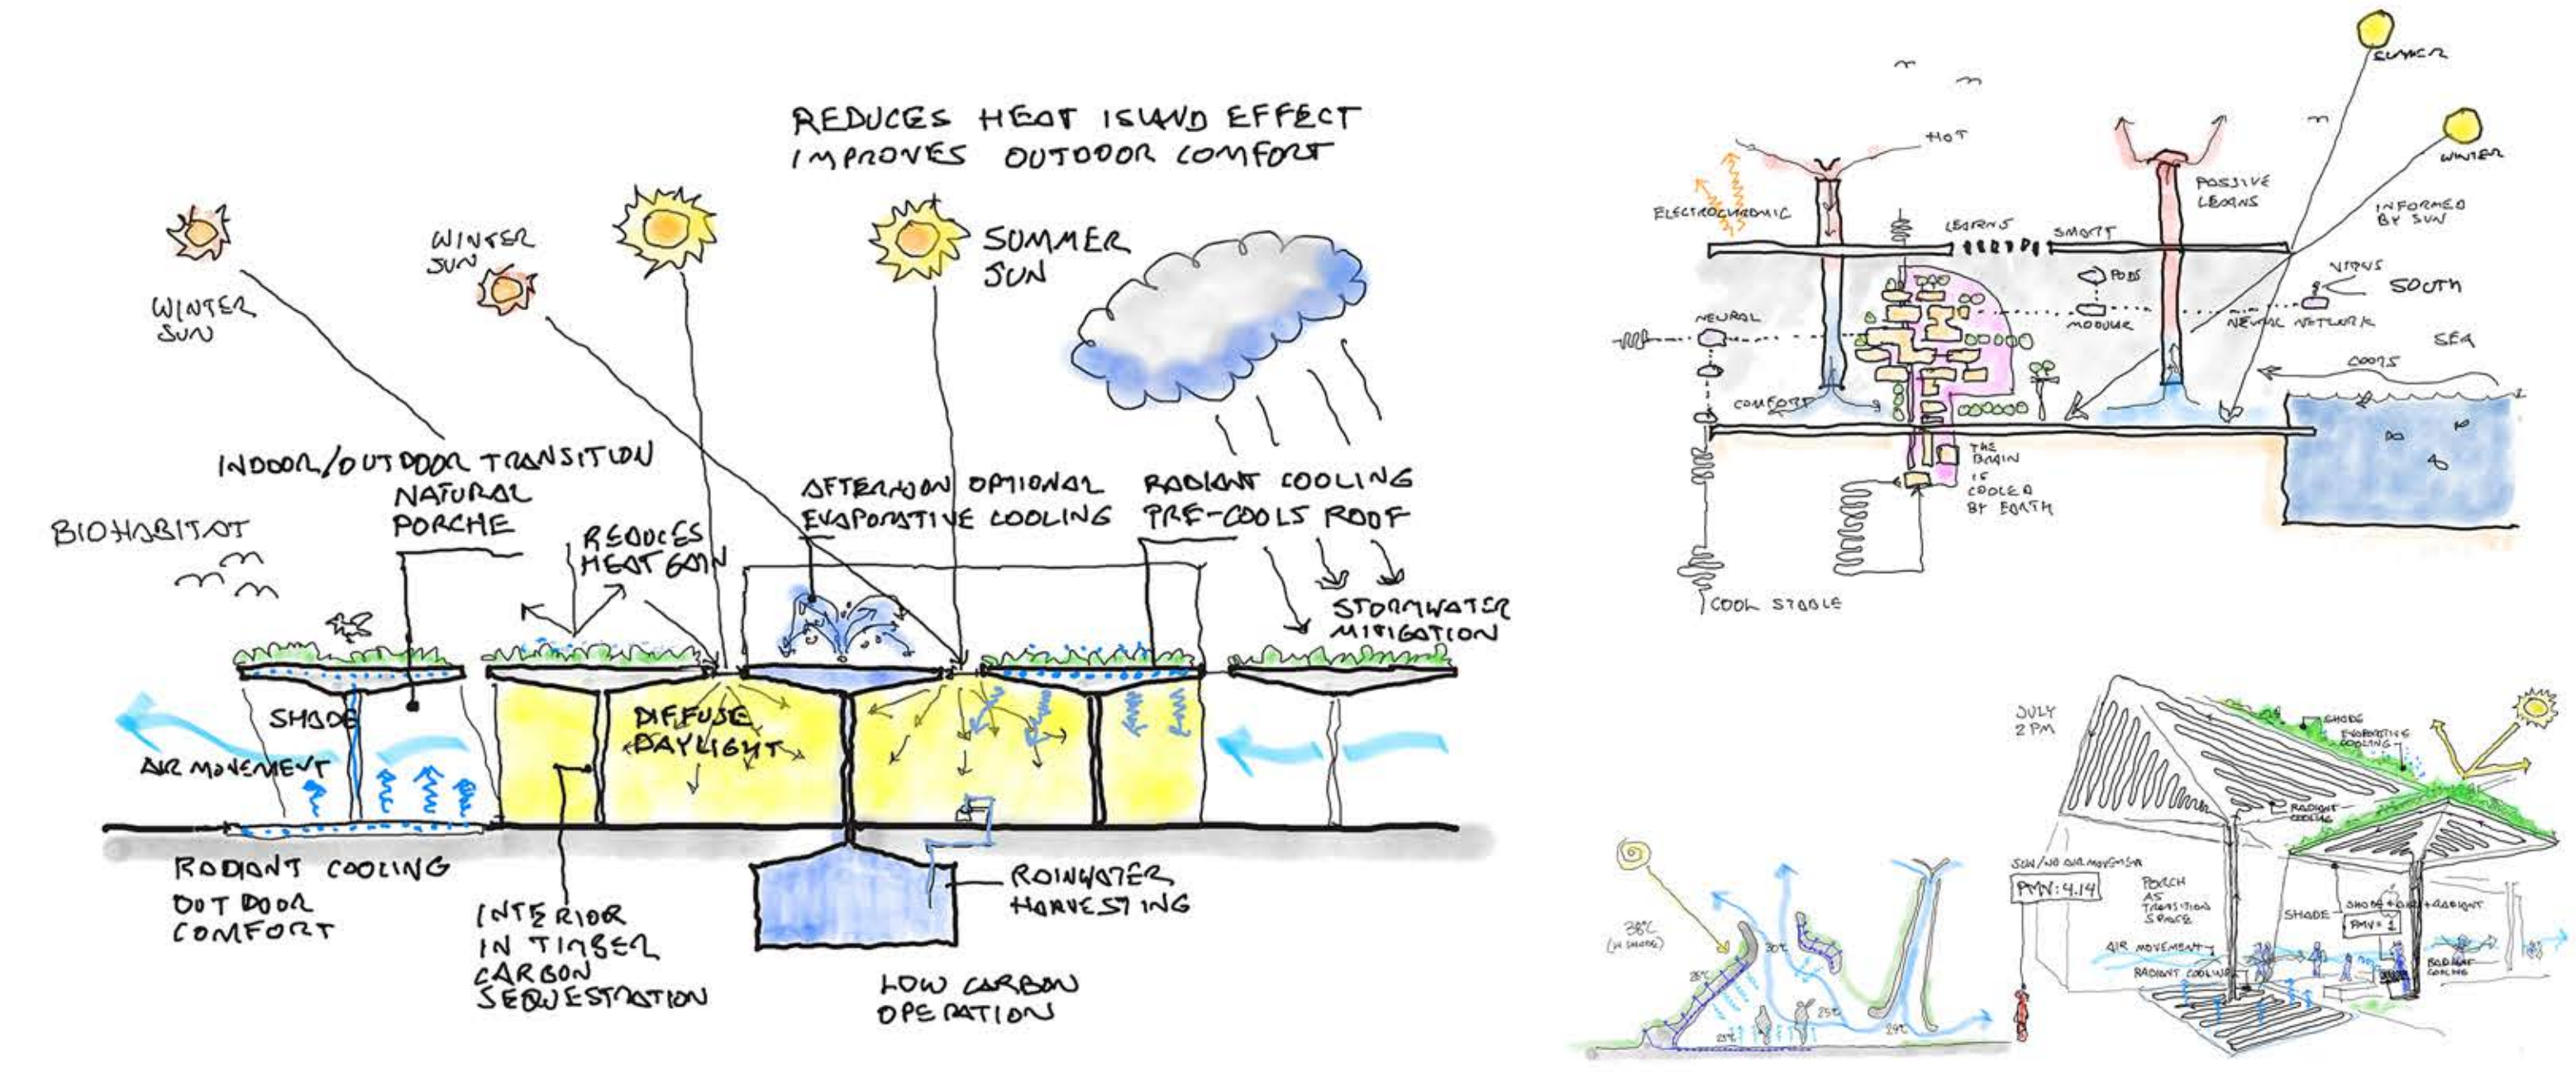 REDUCES HEAT ISLAND EFFECT
IMPROVES OUTDOOR COMFORT
WINTER
SUN
WINTER
SUN
SUMMER
SUN
INDOOR/OUTDOOR TRANSITION
NATURAL
PORCHE
BIOHABITAT
REDUCES
HEAT GAIN
AFTERNOON OPTIONAL
EVAPORATIVE COOLING
RADIANT COOLING
PRE-COOLS ROOF
STORMWATER
MITIGATION
SHADE
AIR MOVEMENT
DIFFUSE
DAYLIGHT
RADIANT COOLING
OUTDOOR
COMFORT
INTERIOR
IN TIMBER
CARBON
SEQUESTRATION
RAINWATER
HARVESTING
LOW CARBON
OPERATION
SUMMER
WINTER
HOT
ELECTROCHROMIC
LEARNS
SMART
PASSIVE
LEARNS
INFORMED
BY SUN
PODS
VIRUS
SOUTH
NEURAL
MODULAR
NEURAL NETWORK
SEA
COOLS
COMFORT
THE
BRAIN
IS
COOLED
BY EARTH
COOL STABLE
JULY
2 PM
SHADE
EVAPORATIVE
COOLING
RADIANT
COOLING
SUN/NO AIR MOVEMENT
PMV: 4.14
PORCH
AS
TRANSITION
SPACE
SHADE
SHADE + AIR + RADIANT
PMV = 1
AIR MOVEMENT
RADIANT COOLING
RADIANT
COOLING
38°C
(IN SHADE)
30°C
25°C